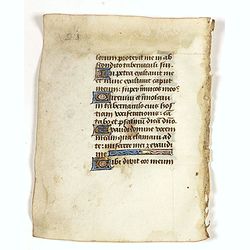 lorum protexit me in ab
scondito tabernaculi sui.
In petra exaltavit me
et nunc exaltavit caput
meum: super inimicos meos
Circuivi et immolavi
in tabernaculo eius hos
tiam vociferationis: can
tabo et psalmum dicam dno
Exaudi domine vocem
meam qua clamavi ad
te: miserere mei et exaudi
me
Tibi dixit cor meum